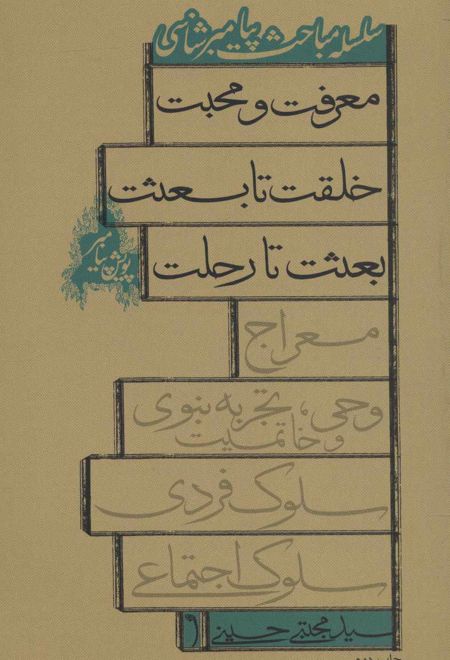 سلسله مباحث پیامبرشناسی
معرفت و محبت
خلقت تا بعثت
بعثت تا رحلت
پویش پیامبر
معراج
وحی، تجربه نبوی
و خاتمیت
سلوک فردی
سلوک اجتماعی
سید مجتبی حسینی
۱